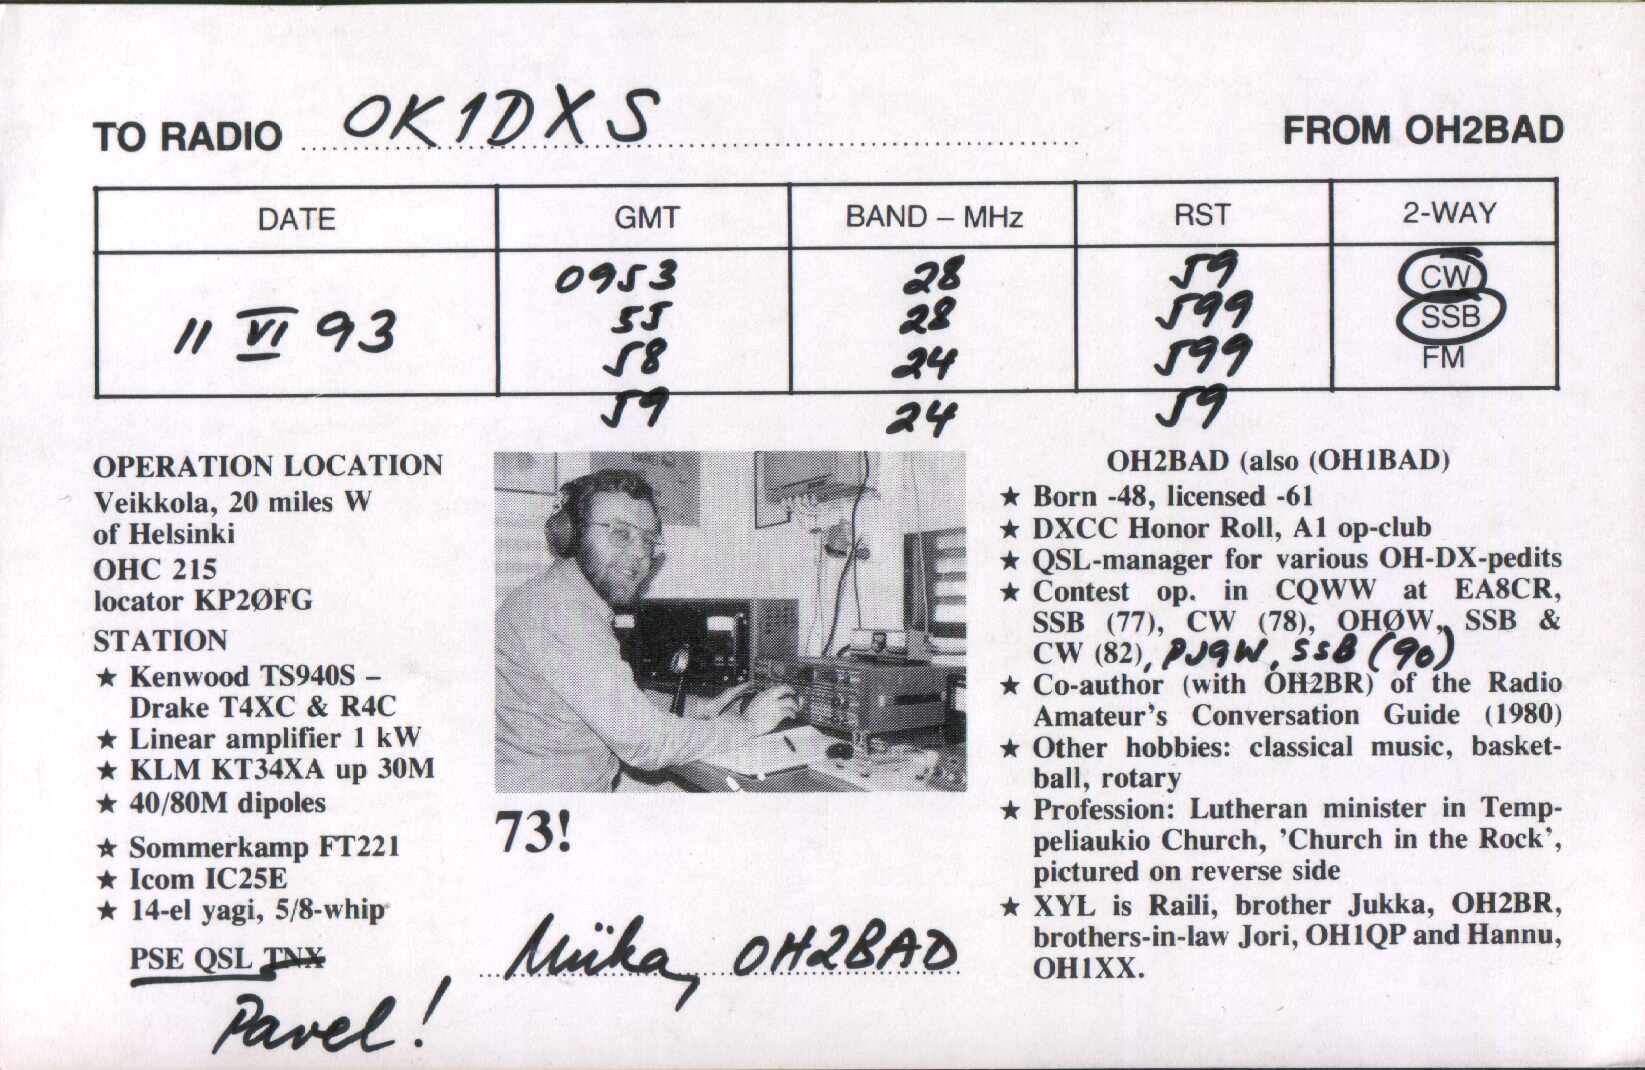 TO RADIO OK1DXS FROM OH2BAD
DATE GMT BAND – MHz RST 2-WAY
11 VI 93
0953 28 59 CW
55 28 599 SSB
58 24 599 FM
59 24 59
OPERATION LOCATION
Veikkola, 20 miles W
of Helsinki
OHC 215
locator KP2ØFG
STATION
★ Kenwood TS940S –
Drake T4XC & R4C
★ Linear amplifier 1 kW
★ KLM KT34XA up 30M
★ 40/80M dipoles
★ Sommerkamp FT221
★ Icom IC25E
★ 14-el yagi, 5/8-whip
PSE QSL TNX
Pavel!
73!
Miika, OH2BAD
OH2BAD (also (OH1BAD)
★ Born -48, licensed -61
★ DXCC Honor Roll, A1 op-club
★ QSL-manager for various OH-DX-pedits
★ Contest op. in CQWW at EA8CR,
SSB (77), CW (78), OHØW, SSB &
CW (82), PJ9W, SSB (90)
★ Co-author (with OH2BR) of the Radio
Amateur's Conversation Guide (1980)
★ Other hobbies: classical music, basket-
ball, rotary
★ Profession: Lutheran minister in Temp-
peliaukio Church, 'Church in the Rock',
pictured on reverse side
★ XYL is Raili, brother Jukka, OH2BR,
brothers-in-law Jori, OH1QP and Hannu,
OH1XX.